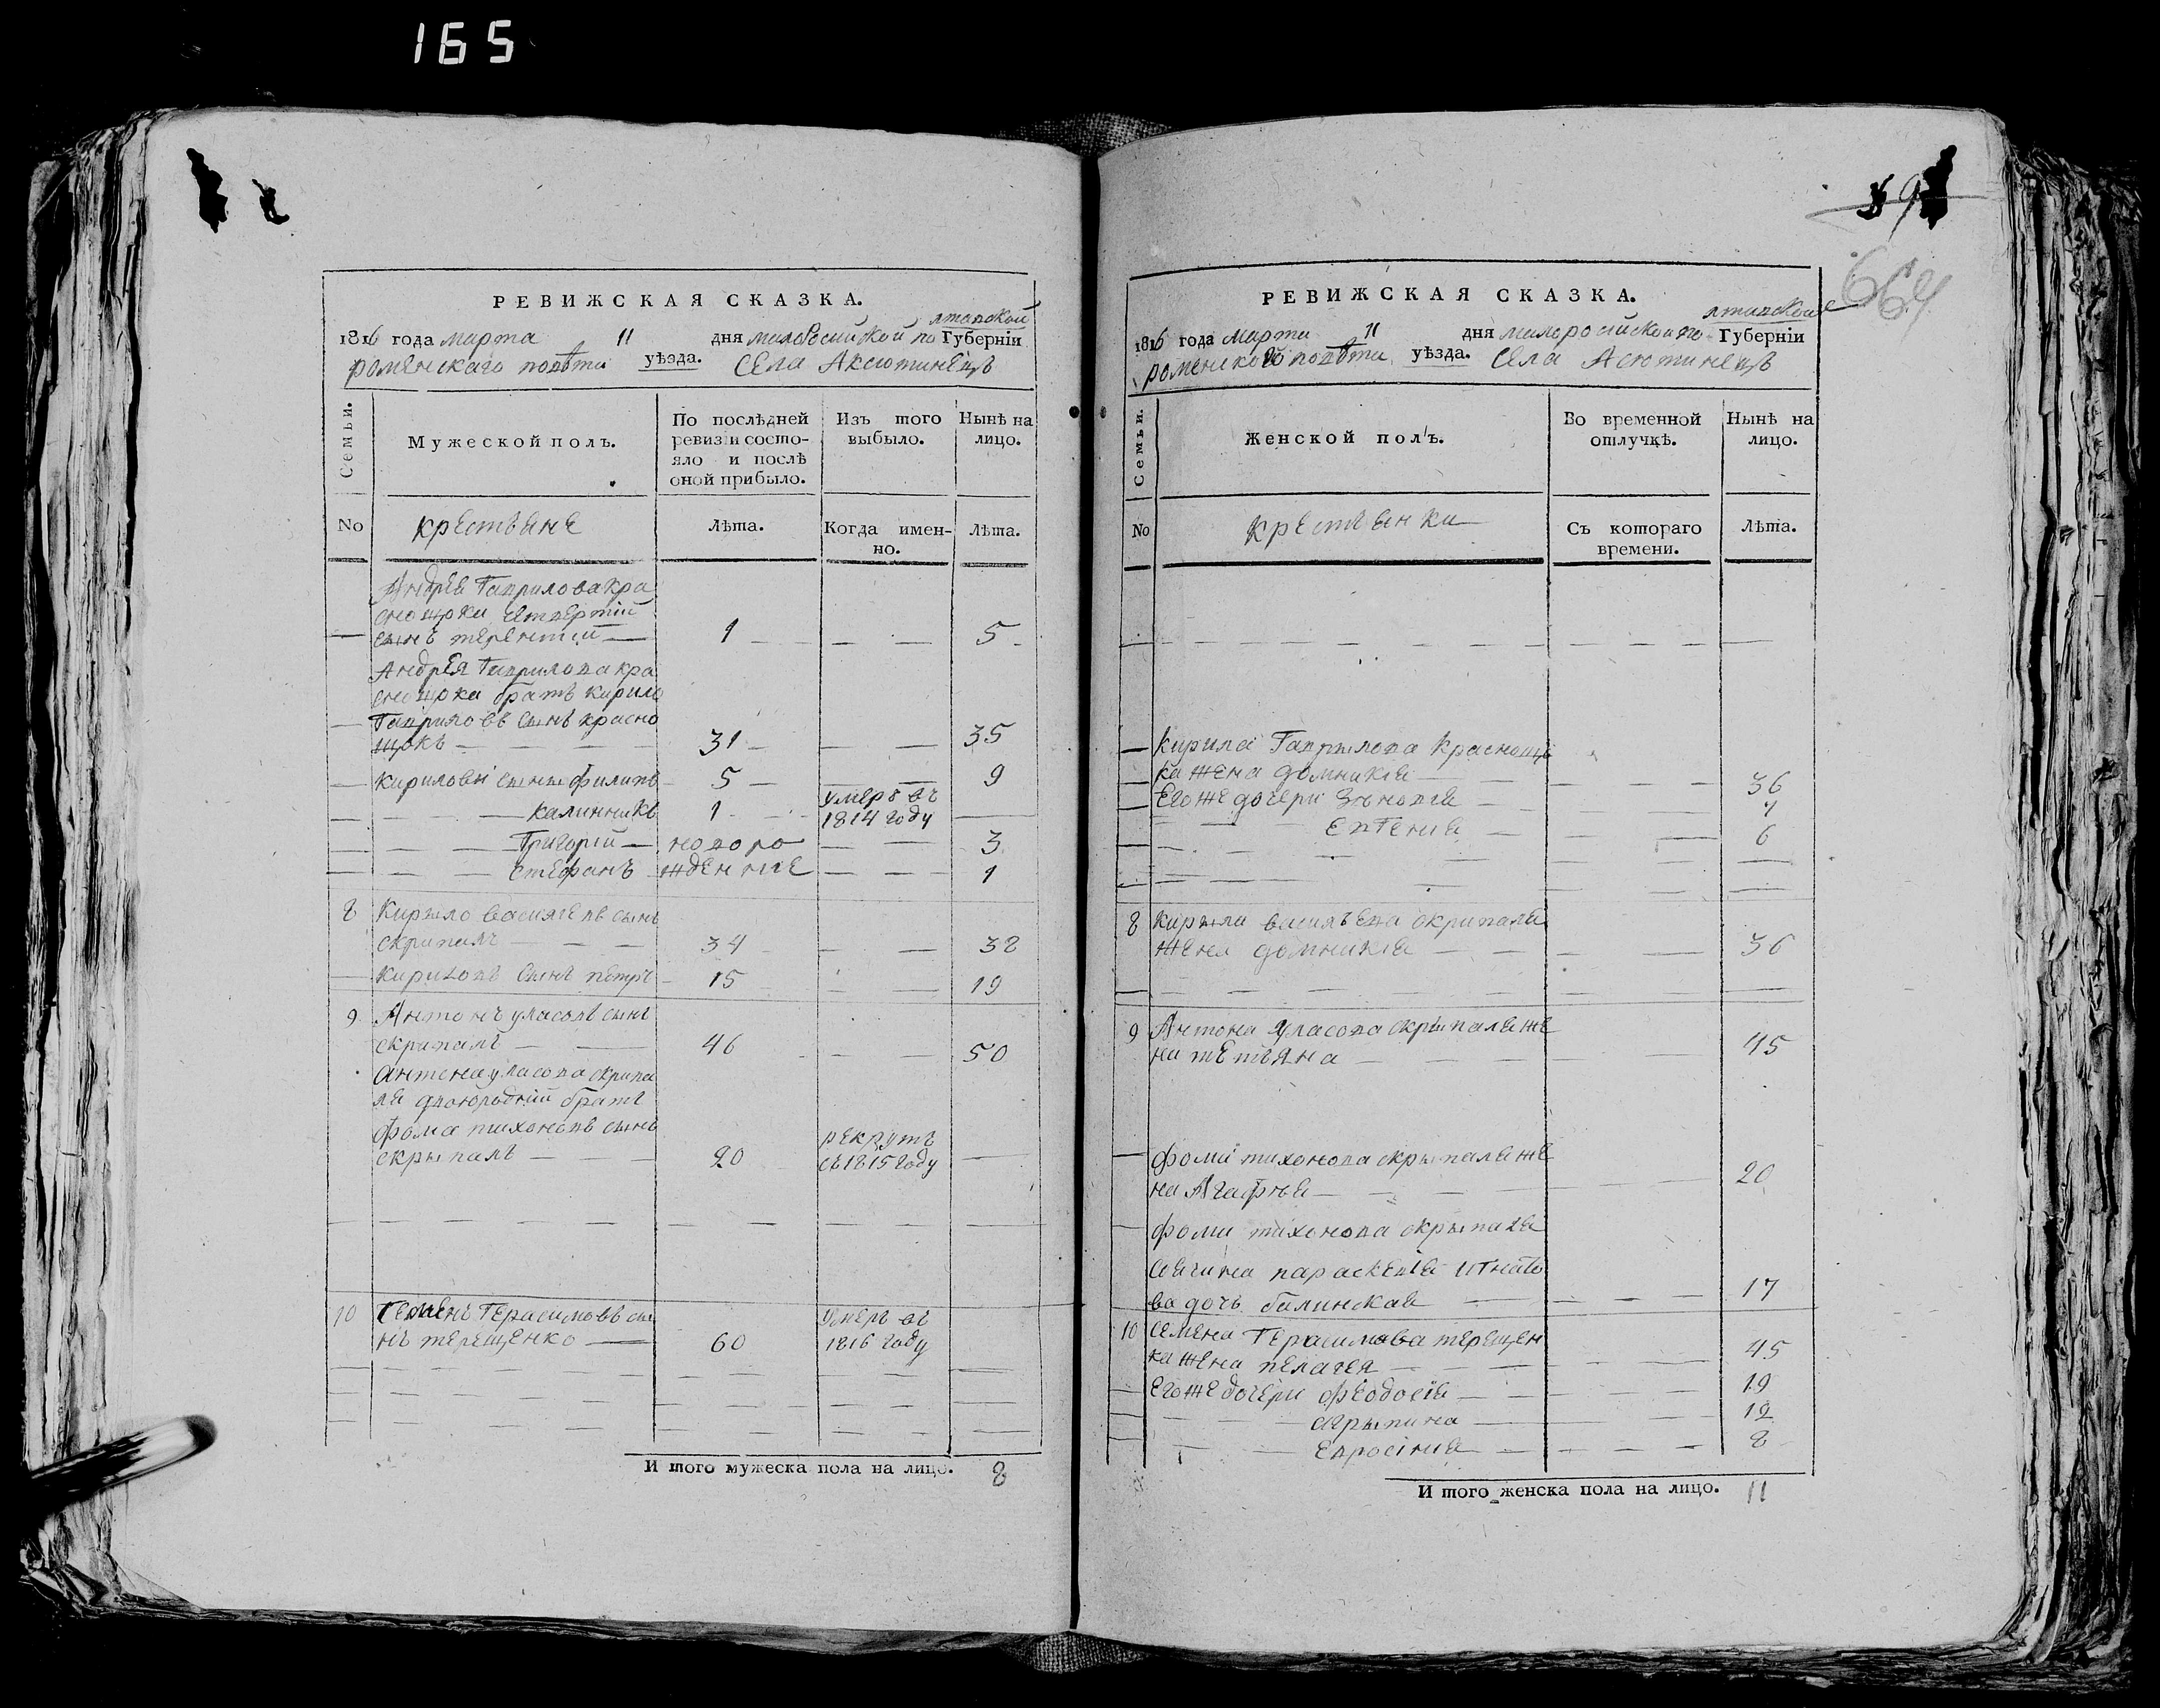 165
РЕВИЖСКАЯ СКАЗКА.
лтавской
1816 года марта 11 дня малоросийской по Губерніи
роменскаго повѣта уѣзда. села Аксютинецъ
Семьи.
Мужеской полъ.
По послѣдней ревизіи состояло и послѣ оной прибыло.
Изъ того выбыло.
Нынѣ на лицо.
No крестьяне Лѣта. Когда именно. Лѣта.
Андрея Гаврилова кра
снощока четвертий
— сынъ терентий — 1 — — — 5
Андрея Гаврилова кра
снощока братъ кирило
— Гавриловъ сынъ красно
щокъ — 31 — — — 35
— кирилови сыны филипъ 5 — — — 9
— калинникъ 1 умеръ въ
1814 году —
— Григорій — новоро — — 3
— стефанъ жденние — — 1
8 Кирыло василевъ сынъ
скрипаль — 34 — — 38
— кириловъ сынъ петръ 15 — — 19
9 Антонъ уласовъ сынъ
скрипаль — 46 — — 50
Антона уласова скрипа
ля двоюродній братъ
фома тихоновъ сынъ
скрыпаль — 20 рекрутъ
съ 1815 году —
10 Семенъ Герасимовъ сы
нъ терещенко — 60 умеръ въ
1816 году
И того мужеска пола на лицо. 8
59
664
РЕВИЖСКАЯ СКАЗКА.
лтавской
1816 года марта 11 дня малоросийской по Губерніи
роменского повѣта уѣзда. села Асютинецъ
Семьи.
Женской полъ.
Во временной отлучкѣ.
Нынѣ на лицо.
No крестьянки Съ котораго времени. Лѣта.
— кирила Гаврылова краснощо
— ка жена домникія — 36
— Его же дочери Зѣновія — 7
— Евгенія — 6
8 кирыла василъева скрипаля
жена домникія — 36
9 Антона уласова скрыпаля же
на тетъяна — 45
— фомы тихонова скрыпаля же
на Агафія — 20
— фомы тихонова скрыпаля
параскевія игнато
ва дочь балинская — 17
10 семена Герасимова терещен
ка жена пелагея — 45
— Его же дочери феодосія — 19
— агрыпина — 12
— Евросінія — 8
И того женска пола на лицо. 11